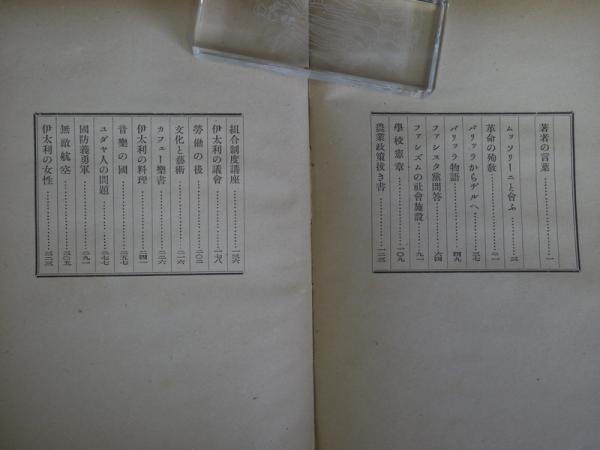 著者の言葉……………一
ムッソリーニと會ふ……一三
革命の殉教……………二一
バリッラからヂルへ……三七
バリッラ物語……………四九
ファシスタ黨問答………六四
ファシズムの社會施設……九一
學校憲章……………一〇九
農業政策抜き書………一二三
組合制度講座…………一三六
伊太利の議會…………一七八
勞働の後……………二〇二
文化と藝術……………二一六
カフェー樂書…………二二六
伊太利の料理…………二四一
音樂の國……………二五七
ユダヤ人の問題………二七七
國防義勇軍……………二九一
無敵航空……………三〇五
伊太利の女性…………三二三